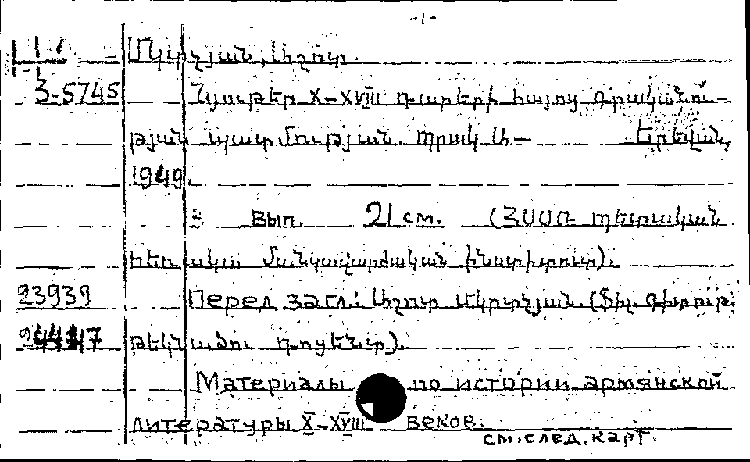 -1-
Մկրտչյան, Աշոտ.
3-5745 Նյութեր X-XVIII դարերի հայոց գրականու-
թյան պատմության. Պրակ Ա- Երևան,
1949.
3 вып. 21 см. (ՀՍՍՌ պետական
հեռակա մանկավարժական ինստիտուտ).
23939 Перед загл.: Աշոտ Մկրտչյան. (Ֆիլ. գիտութ.
թեկնածու դոցենտ).
Материалы по истории армянской
литературы X-XVIII веков.
см. след. карт.